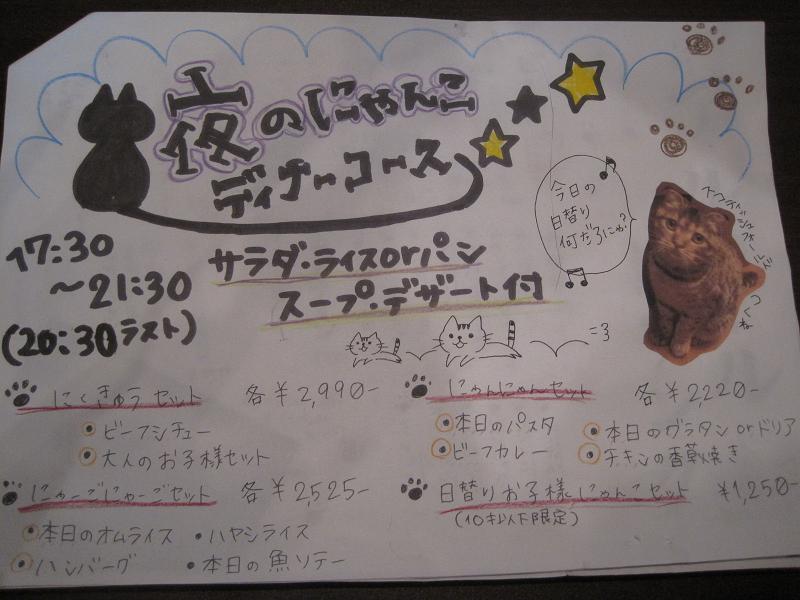 夜のにゃんこ
ディナーコース
17:30
～21:30
(20:30ラスト)
サラダ・ライスorパン
スープ・デザート付
今日の
日替り
何だろにゃ?
つくね
=3
にくきゅうセット 各¥2,990-
ビーフシチュー
大人のお子様セット
にゃんにゃんセット 各¥2220-
本日のパスタ
ビーフカレー
本日のグラタンorドリア
チキンの香草焼き
にゃーごにゃーごセット 各¥2,525-
本日のオムライス ・ハヤシライス
ハンバーグ ・本日の魚ソテー
日替りお子様にゃんこセット ¥1,250-
(10才以下限定)